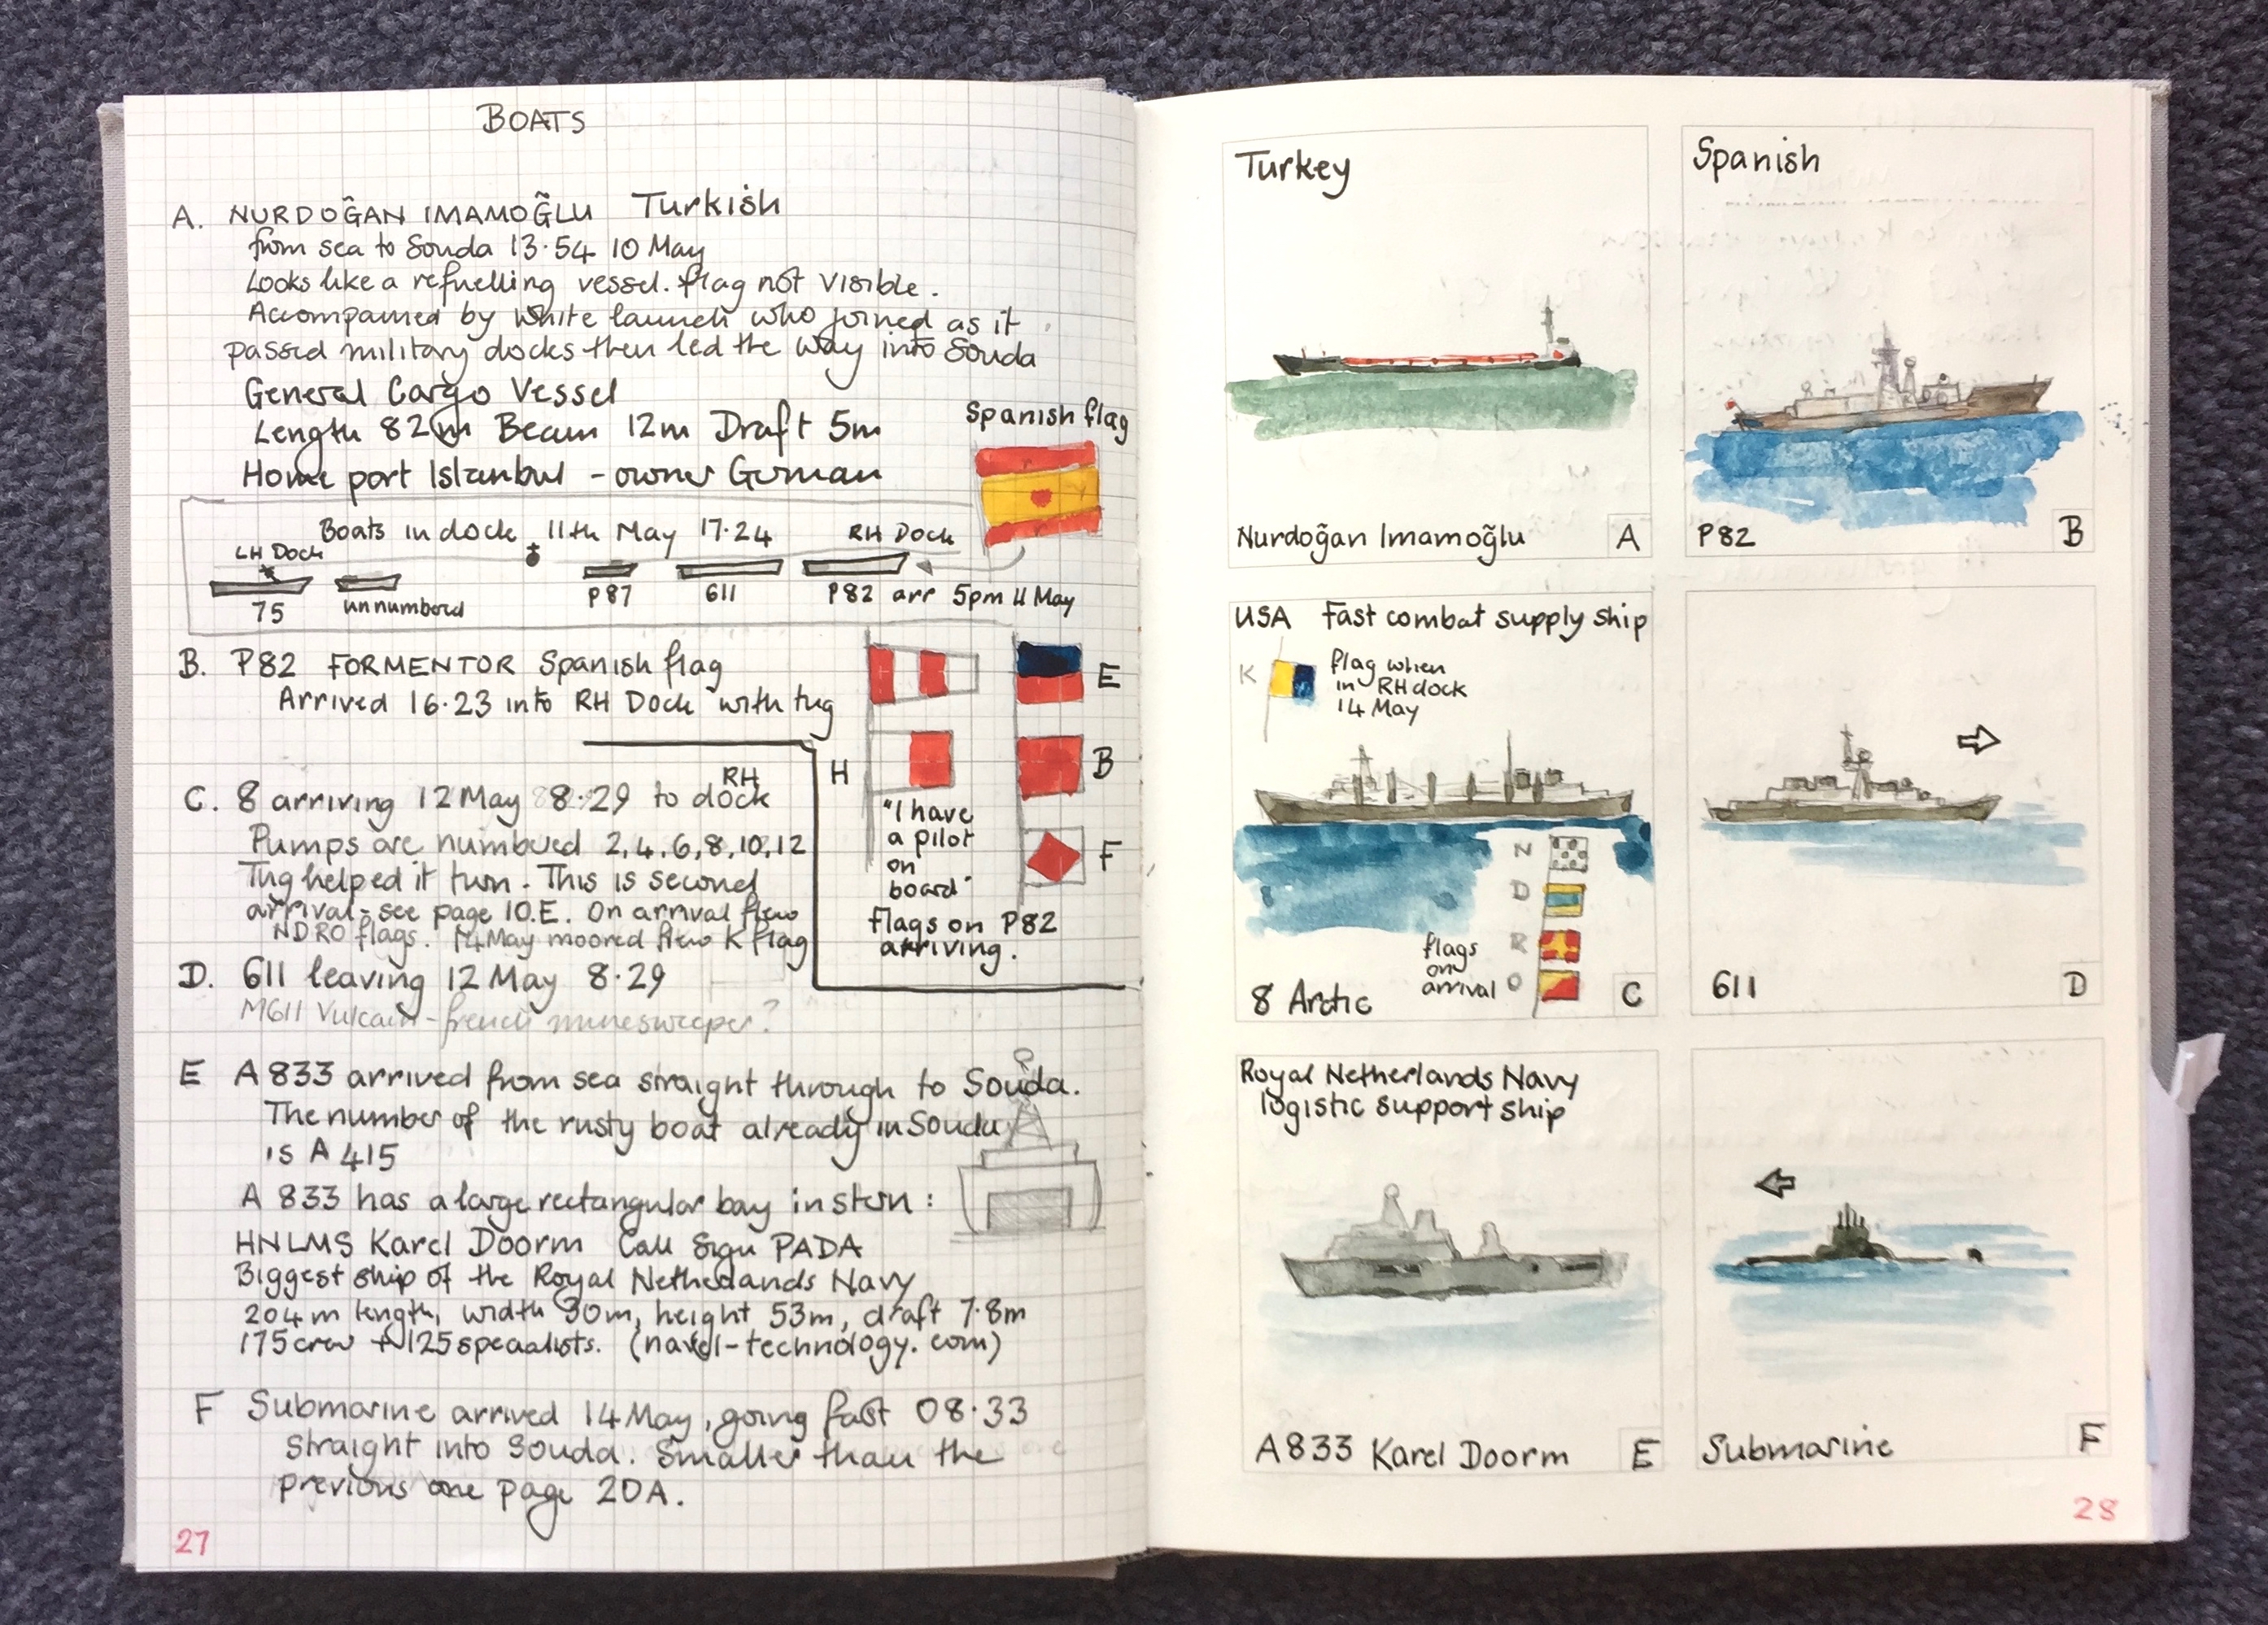 BOATS
A. NURDOĞAN IMAMOĞLU Turkish
from sea to Souda 13.54 10 May
Looks like a refuelling vessel. flag not visible.
Accompanied by white launch who joined as it
passed military docks then led the way into Souda
General Cargo Vessel
Length 82m Beam 12m Draft 5m
Home port Istanbul - owner German
Spanish flag
Boats in dock 11th May 17.24
LH Dock
RH Dock
75
unnumbered
P87
611
P82 arr 5pm 11 May
B. P82 FORMENTOR Spanish flag
Arrived 16.23 into RH Dock with tug
E
H
B
F
"I have
a pilot
on
board"
flags on P82
arriving.
C. 8 arriving 12 May 8.29 to RH dock
Pumps are numbered 2,4,6,8,10,12
Tug helped it turn. This is second
arrival - see page 10.E. On arrival flew
NDRO flags. 14 May moored flew K flag
D. 611 leaving 12 May 8.29
M611 Vulcain - french minesweeper?
E A833 arrived from sea straight through to Souda.
The number of the rusty boat already in Souda
is A415
A 833 has a large rectangular bay in stern:
HNLMS Karel Doorm Call Sign PADA
Biggest ship of the Royal Netherlands Navy
204m length, width 30m, height 53m, draft 7.8m
175 crew + 125 specialists. (naval-technology.com)
F Submarine arrived 14 May, going fast 08.33
straight into Souda. Smaller than the
previous one page 20A.
27
Turkey
Nurdoğan Imamoğlu A
Spanish
P82 B
USA Fast combat supply ship
K
flag when
in RH dock
14 May
N
D
R
O
flags
on
arrival
8 Arctic C
611 D
Royal Netherlands Navy
logistic support ship
A833 Karel Doorm E
Submarine F
28